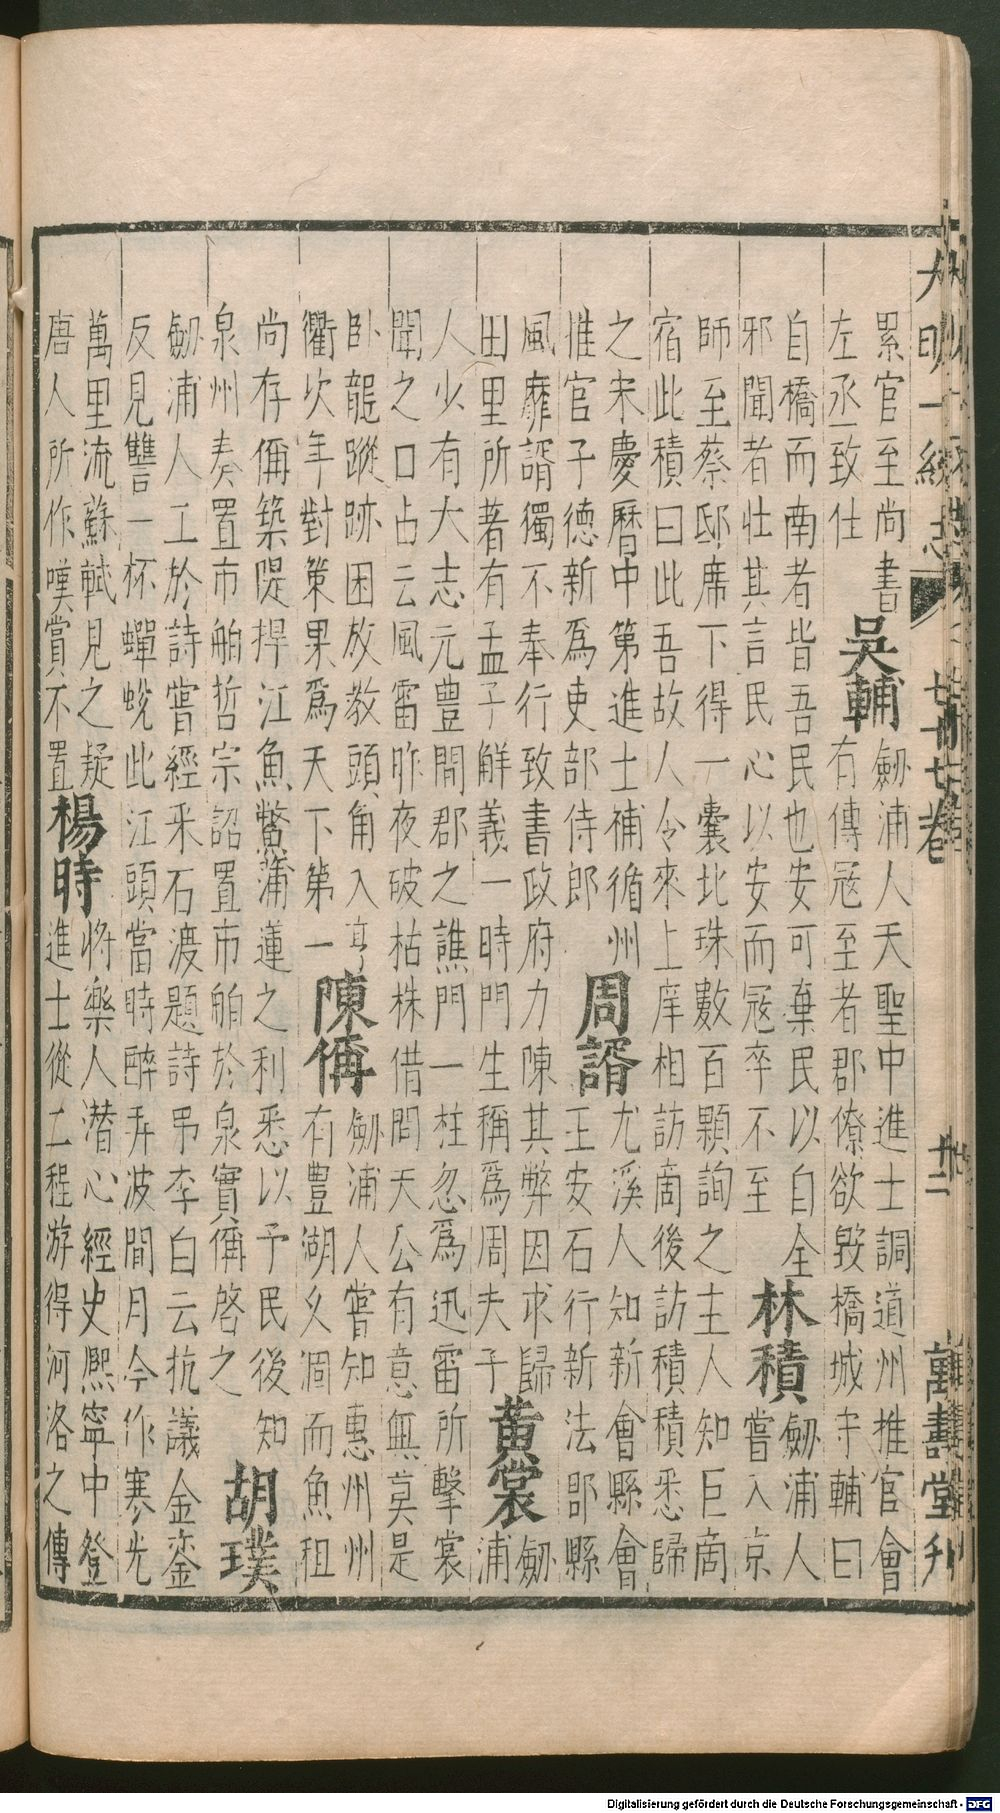 大明一統志 七十七卷 十二 萬壽堂刋
累官至尚書
左丞致仕
吳輔
劔浦人天聖中進士調道州推官會
有傳冦至者郡僚欲毀橋城守輔曰
自橋而南者皆吾民也安可棄民以自全
邪聞者壮其言民心以安而冦卒不至
林積
劔浦人
嘗入京
師至蔡邸席下得一囊北珠數百顆詢之主人知巨商
宿此積曰此吾故人令來上庠相訪商後訪積積悉歸
之未慶曆中第進士補循州
惟官子德新爲吏部侍郎
周諝
尤溪人知新會縣會
王安石行新法郡縣
風靡諝獨不奉行致書政府力陳其弊因求歸
田里所著有孟子解義一時門生稱爲周夫子
黄裳
劔
浦
人少有大志元豊間郡之譙門一柱忽爲迅雷所擊裳
聞之口占云風雷昨夜破枯株借問天公有意無莫是
卧龍蹤跡困放教頭角入亨
衢次年對策果爲天下第一
陳偁
劔浦人嘗知惠州州
有豊湖乆涸而魚租
尚存偁築隄捍江魚鱉蒲蓮之利悉以予民後知
泉州奏置市舶哲宗詔置市舶於泉實偁啓之
胡璞
劔浦人工於詩嘗經采石渡題詩弔李白云抗議金銮
反見讐一杯蟬蛻此江頭當時醉弄波間月今作寒光
萬里流蘇軾見之疑
唐人所作嘆賞不置
楊時
將樂人潜心經史熈寧中登
進士從二程游得河洛之傳
Digitalisierung gefördert durch die Deutsche Forschungsgemeinschaft - DFG